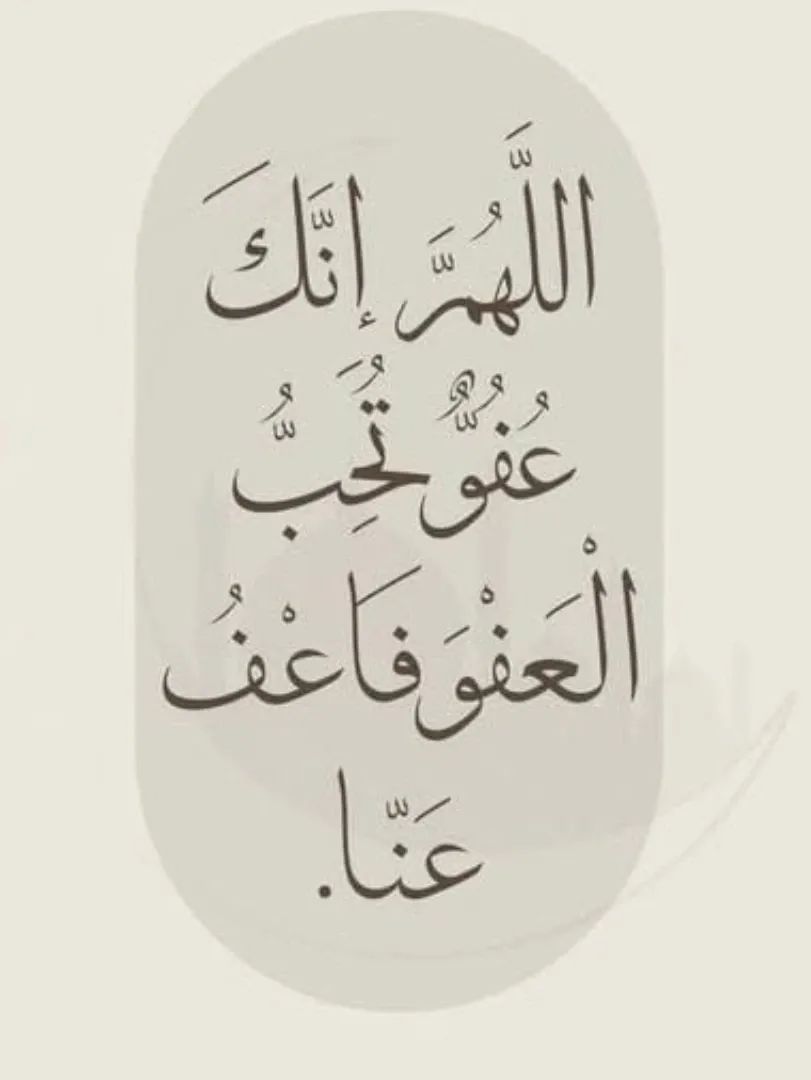 اللَّهُمَّ إنَّكَ
عُفُوٌّ تُحِبُّ
الْعَفْوَ فَاعْفُ
عَنّا.